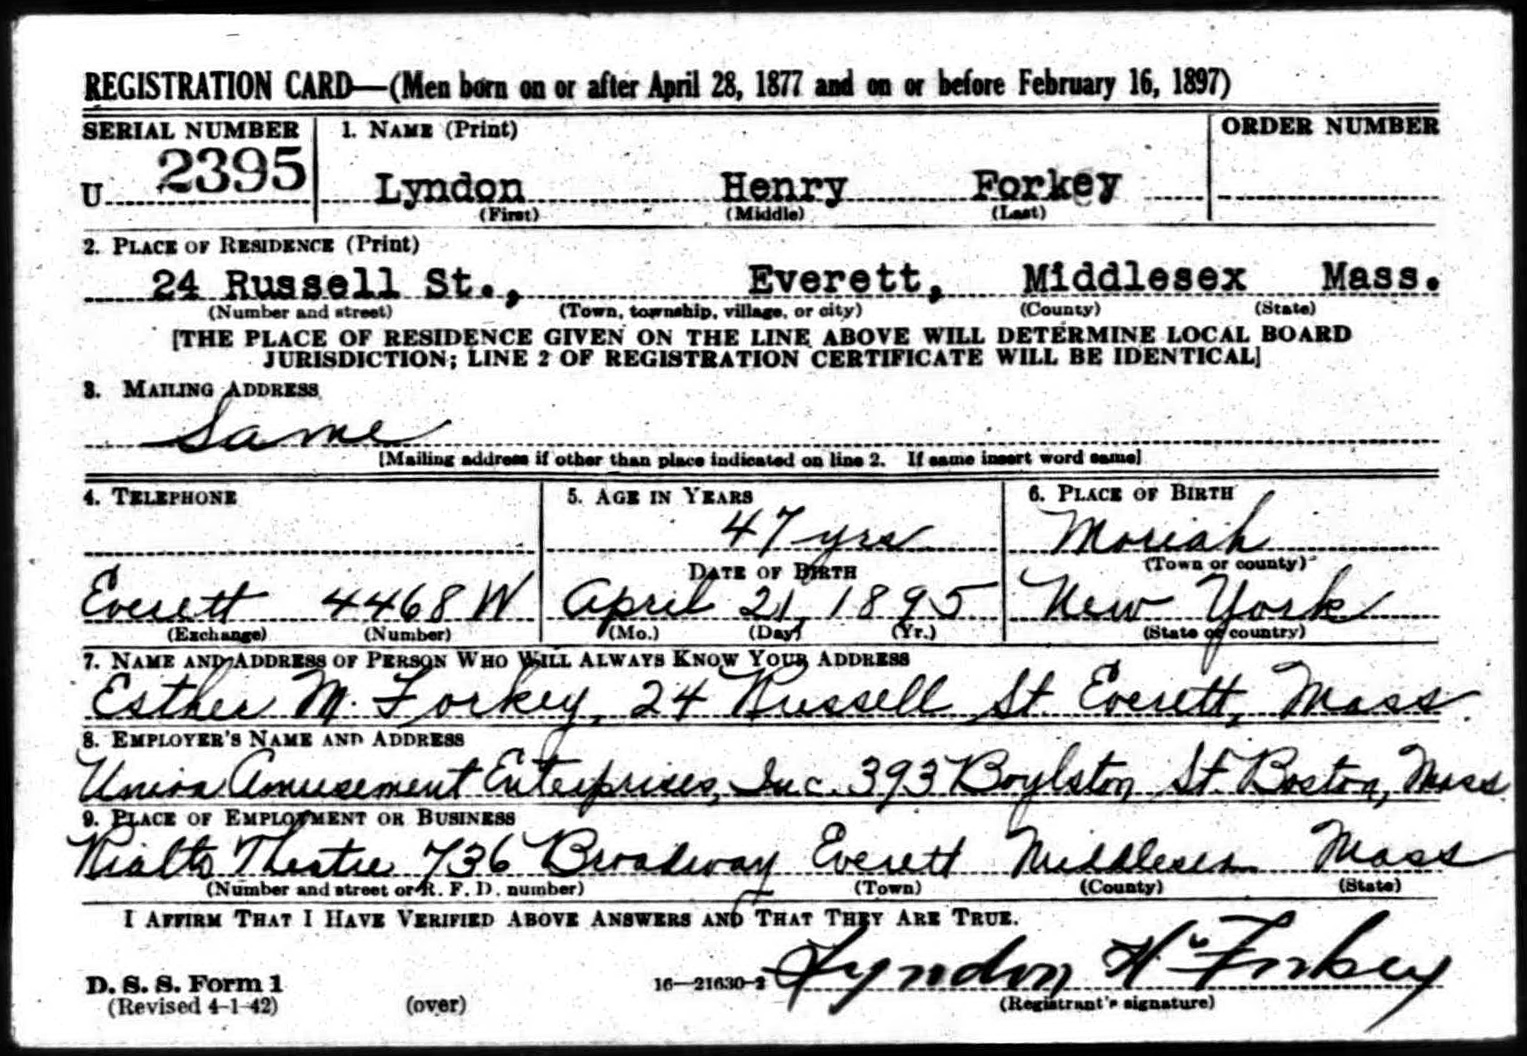 REGISTRATION CARD—(Men born on or after April 28, 1877 and on or before February 16, 1897)
SERIAL NUMBER 1. NAME (Print) ORDER NUMBER
U 2395 Lyndon Henry Forkey
(First) (Middle) (Last)
2. PLACE OF RESIDENCE (Print)
24 Russell St., Everett, Middlesex Mass.
(Number and street) (Town, township, village, or city) (County) (State)
[THE PLACE OF RESIDENCE GIVEN ON THE LINE ABOVE WILL DETERMINE LOCAL BOARD
JURISDICTION; LINE 2 OF REGISTRATION CERTIFICATE WILL BE IDENTICAL]
3. MAILING ADDRESS
Same
[Mailing address if other than place indicated on line 2. If same insert word same]
4. TELEPHONE 5. AGE IN YEARS 6. PLACE OF BIRTH
47 yrs Moriah
DATE OF BIRTH (Town or county)
Everett 4468 W April 21, 1895 New York
(Exchange) (Number) (Mo.) (Day) (Yr.) (State or country)
7. NAME AND ADDRESS OF PERSON WHO WILL ALWAYS KNOW YOUR ADDRESS
Esther M. Forkey, 24 Russell St. Everett, Mass
8. EMPLOYER'S NAME AND ADDRESS
Union Amusement Enterprises, Inc. 393 Boylston St. Boston, Mass
9. PLACE OF EMPLOYMENT OR BUSINESS
Rialto Theatre 736 Broadway Everett Middlesex Mass
(Number and street or R. F. D. number) (Town) (County) (State)
I AFFIRM THAT I HAVE VERIFIED ABOVE ANSWERS AND THAT THEY ARE TRUE.
D. S. S. Form 1 16—21630-2 Lyndon H. Forkey
(Revised 4-1-42) (over) (Registrant's signature)